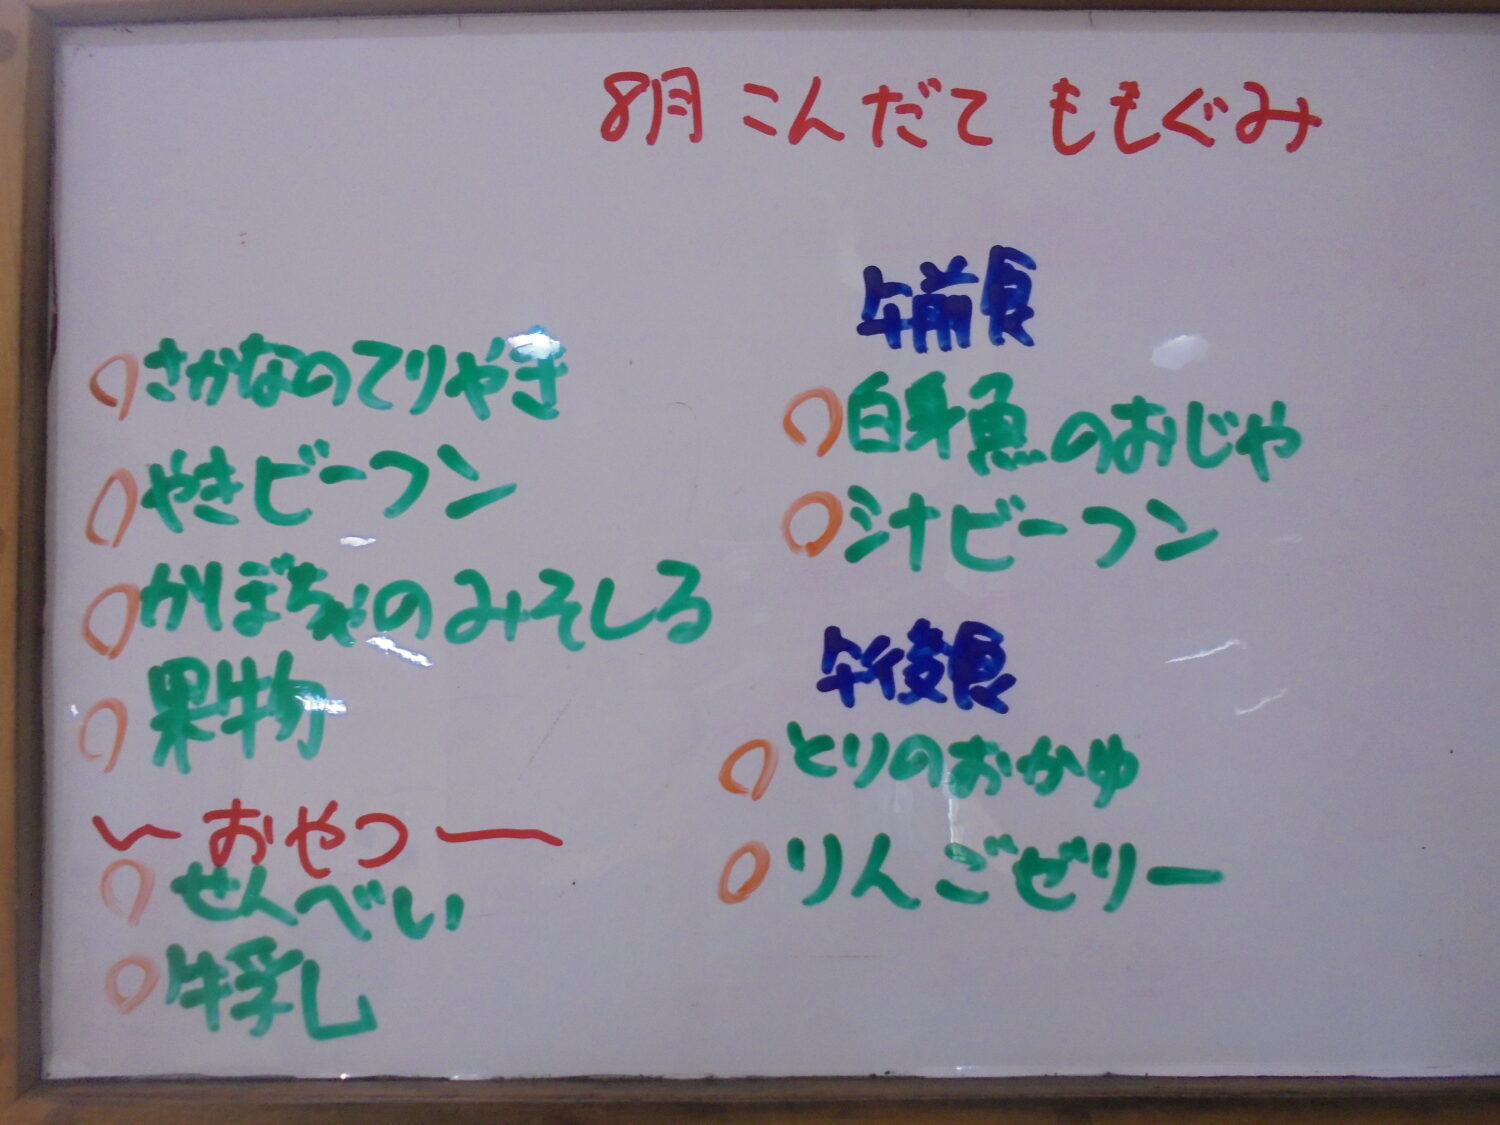 8月 こんだて ももぐみ
○さかなのてりやき
○やきビーフン
○かぼちゃのみそしる
○果物
〜おやつ〜
○せんべい
○牛乳
午前食
○白身魚のおじや
○汁ビーフン
午後食
○とりのおかゆ
○りんごゼリー